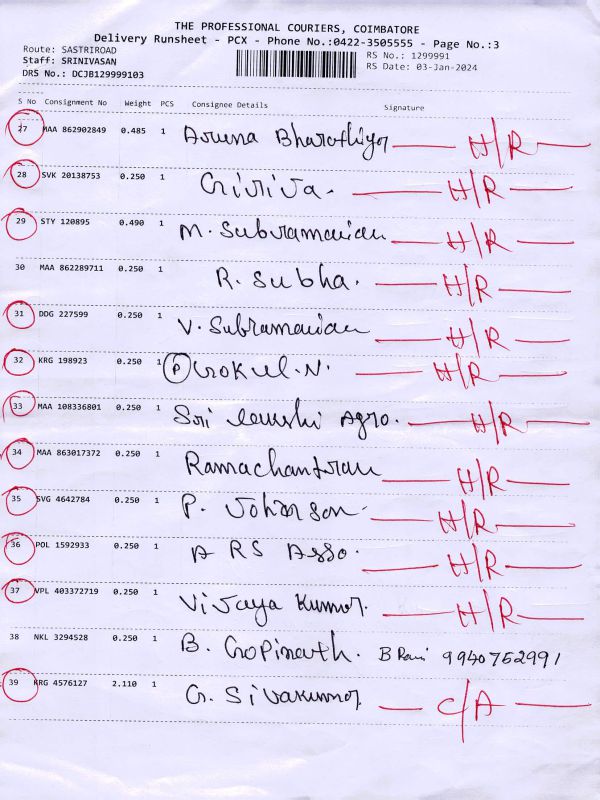 THE PROFESSIONAL COURIERS, COIMBATORE
Delivery Runsheet - PCX - Phone No.:0422-3505555 - Page No.:3
Route: SASTRIROAD RS No.: 1299991
Staff: SRINIVASAN RS Date: 03-Jan-2024
DRS No.: DCJB129999103
S No Consignment No Weight PCS Consignee Details Signature
27 MAA 862902849 0.485 1 Aruna Bharathiyar H/R
28 SVK 20138753 0.250 1 H/R
29 STY 120895 0.490 1 M. Subramanian H/R
30 MAA 862289711 0.250 1 R. Subha. H/R
31 DDG 227599 0.250 1 V. Subramanian H/R
32 KRG 198923 0.250 1 P Gokul.N. H/R
33 MAA 108336801 0.250 1 Sri Agro. H/R
34 MAA 863017372 0.250 1 Ramachantran H/R
35 SVG 4642784 0.250 1 P. Johnson H/R
36 POL 1592933 0.250 1 A RS Asso. H/R
37 VPL 403372719 0.250 1 Vijaya Kumar. H/R
38 NKL 3294528 0.250 1 B. Gopinath. B Rani 9940752991
39 KRG 4576127 2.110 1 G. Sivakumar C/A